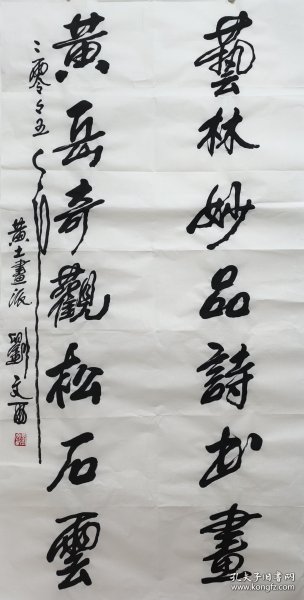 藝林妙品詩書畫
黃岳奇觀松石雲
二零零五年
黃土畫派 劉文西
孔夫子旧书网
www.kongfz.com